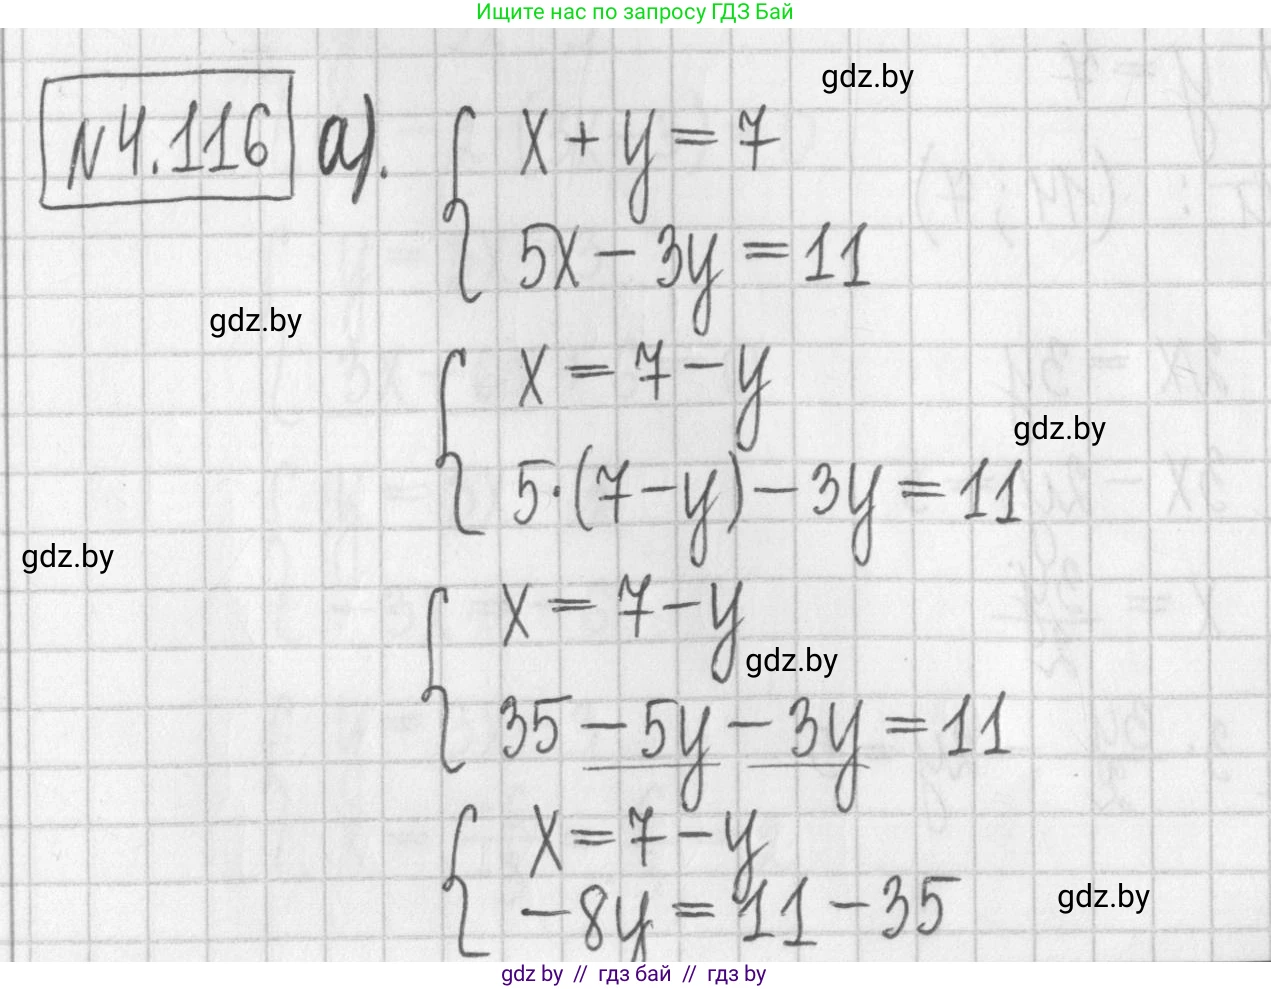 Ищите нас по запросу ГДЗ Бай
gdz.by
№4.116 а). { x + y = 7
5x - 3y = 11
gdz.by
{ x = 7 - y
gdz.by
5·(7-y) - 3y = 11
gdz.by
{ x = 7 - y
gdz.by
35 - 5y - 3y = 11
{ x = 7 - y
-8y = 11 - 35
gdz.by
gdz by // гдз бай // гдз by